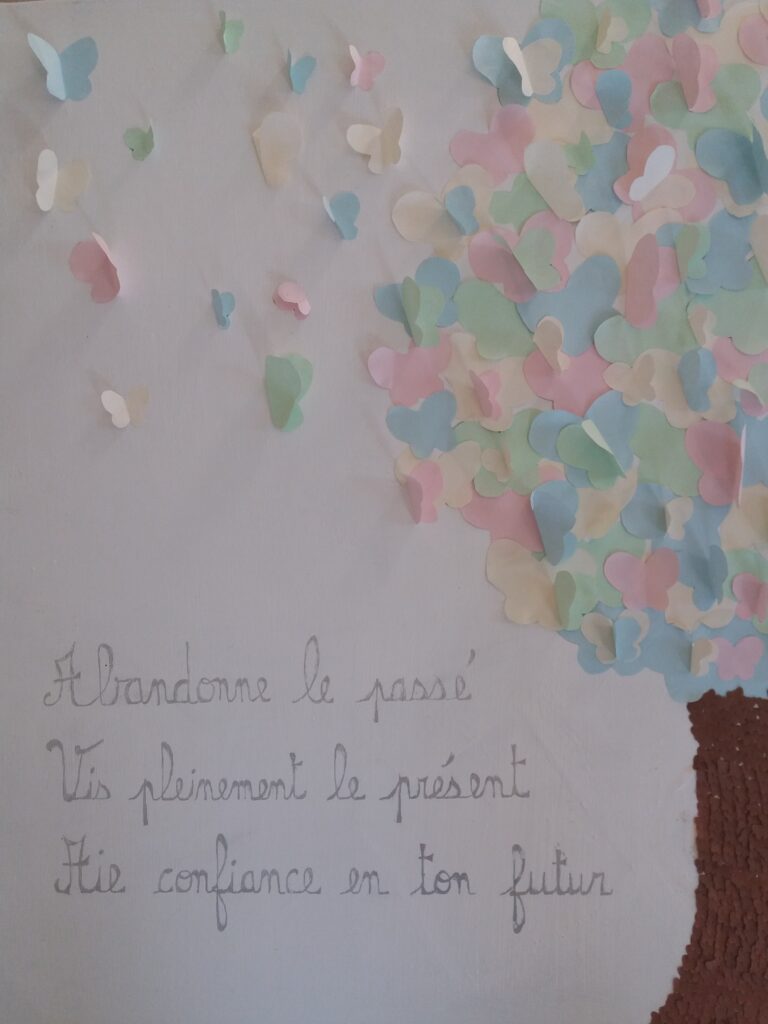 Abandonne le passé
Vis pleinement le présent
Aie confiance en ton futur